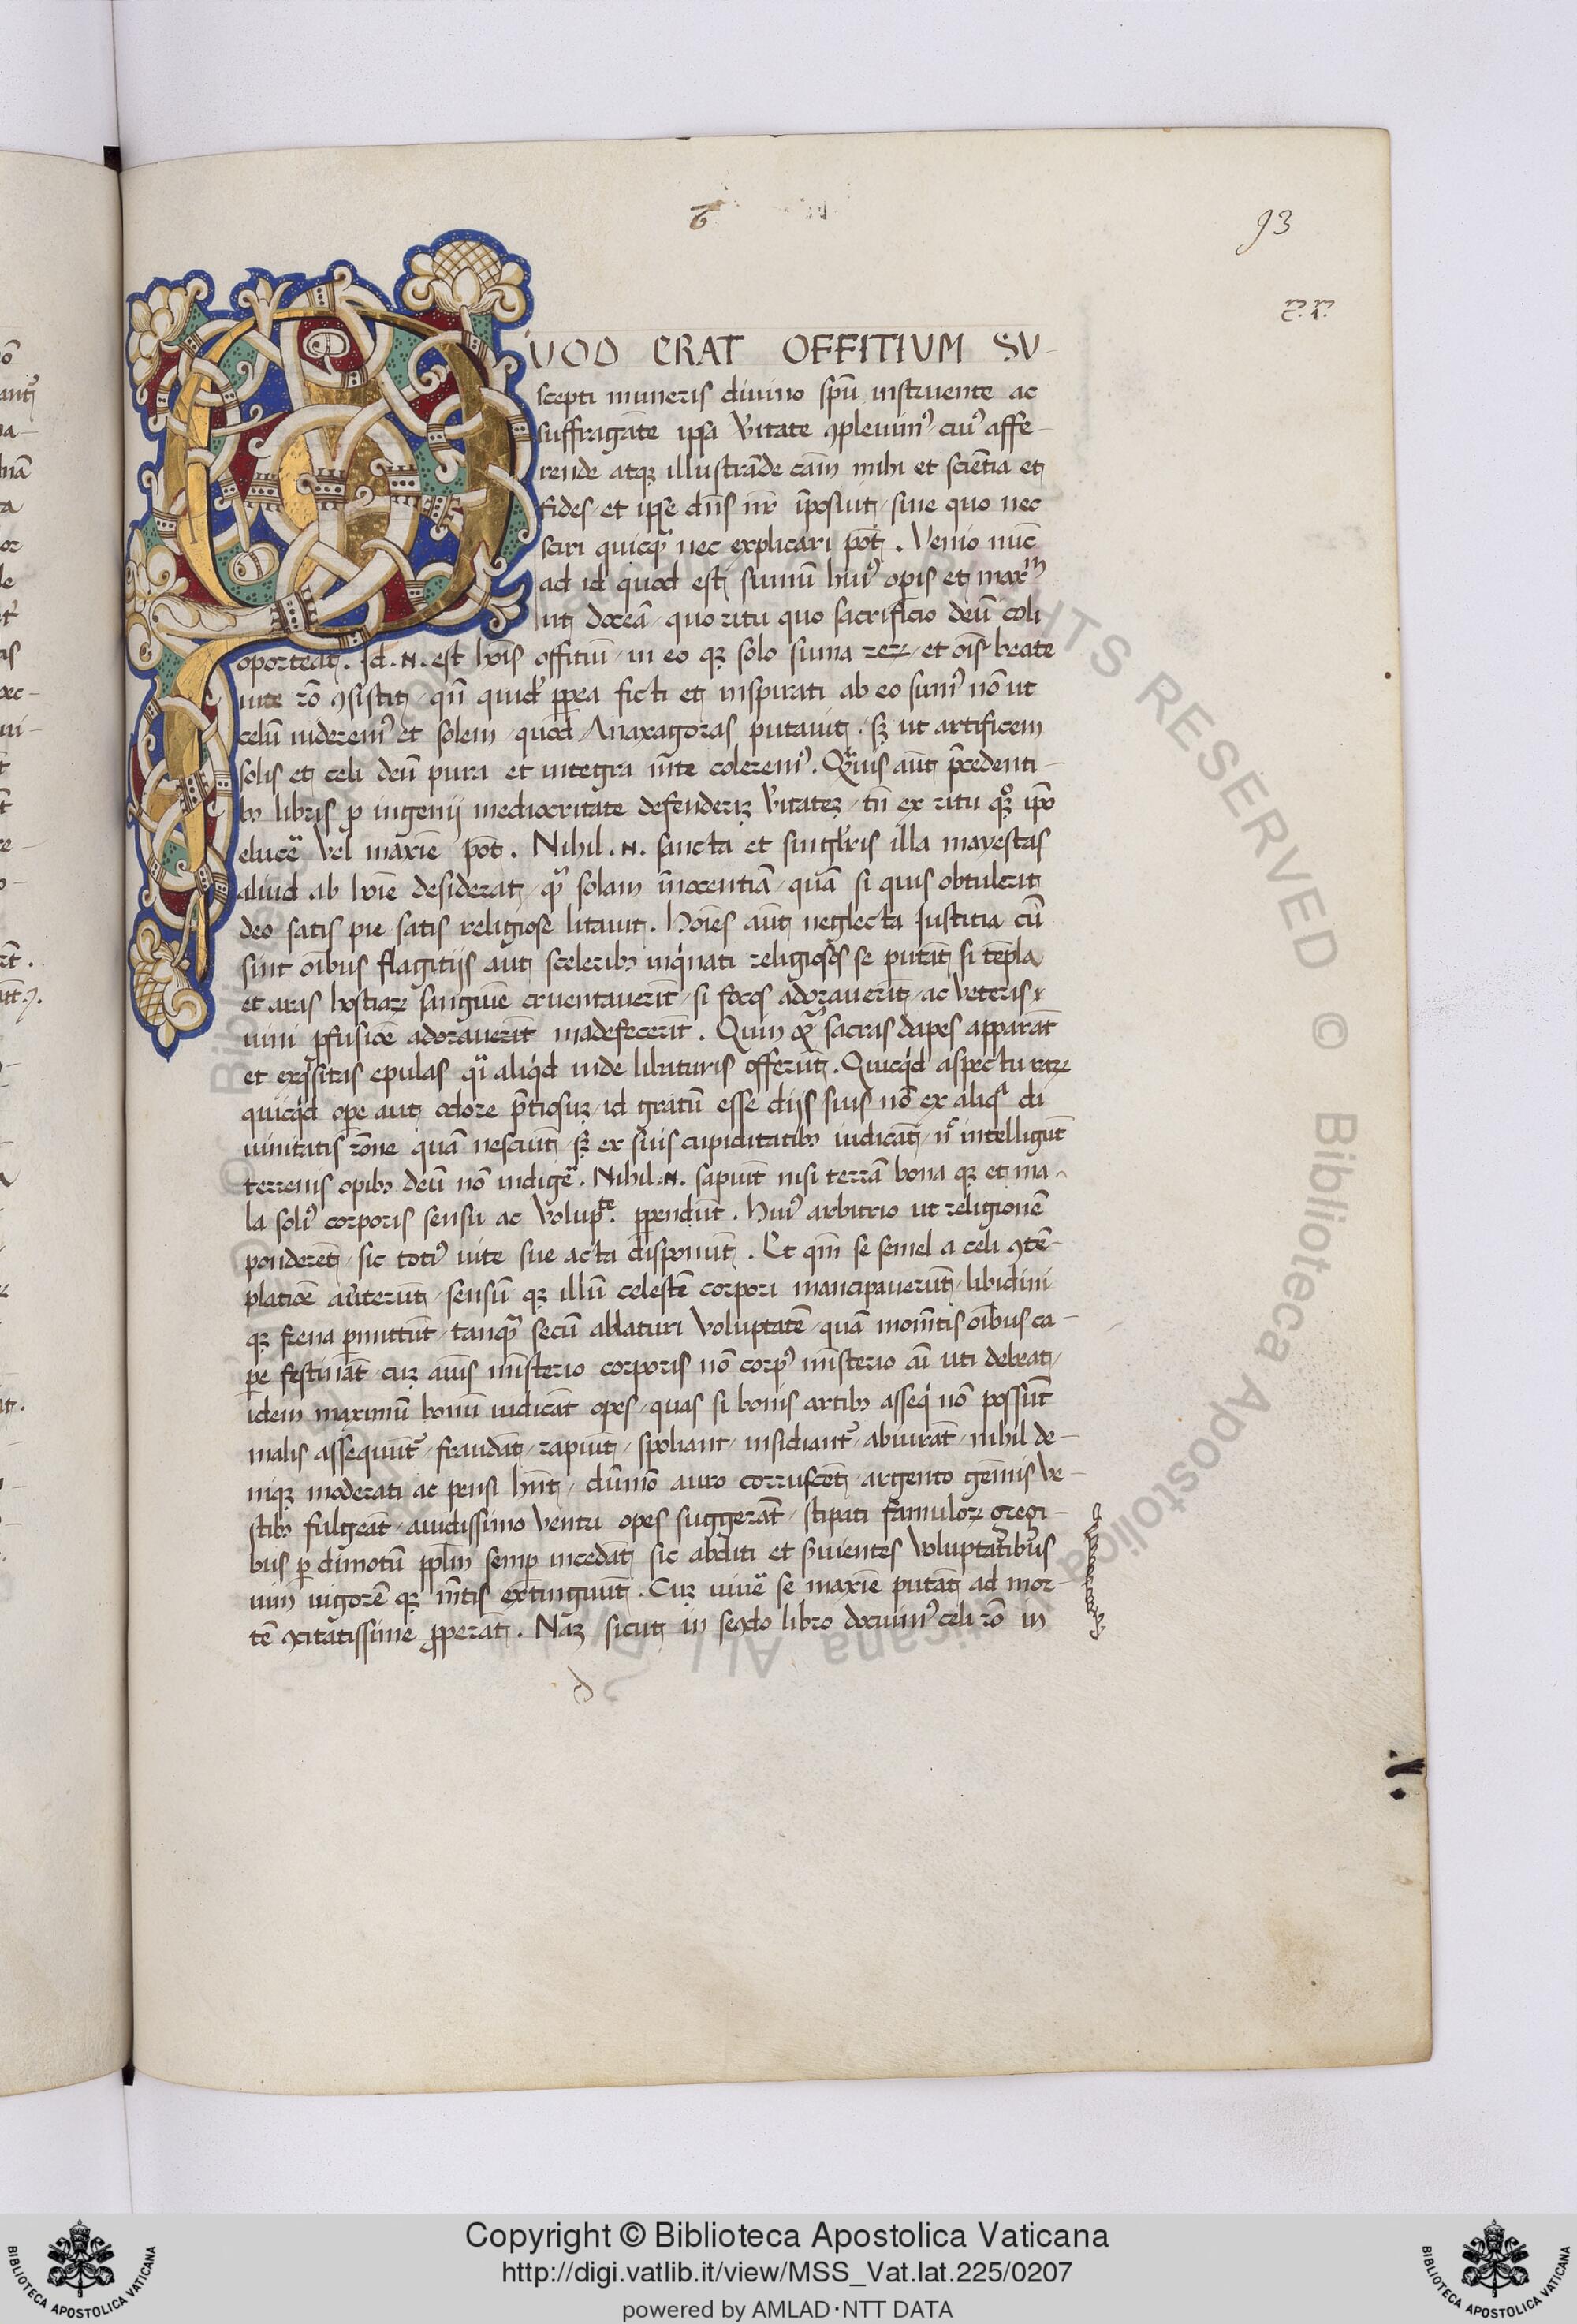 6
93
QUOD ERAT OFFITIUM SU-
scepti muneris divino spū instruente ac
suffragāte ipsa v̄itate ꝯplevimꝰ cuiꝰ affe-
rende atqꝫ illustrāde cām mihi et sciētia et
fides et ipse dn̄s nr̄ īposuit sine quo nec
sciri quicqᷓ nec explicari pōt. Venio nūc
ad id quod est sumū huiꝰ opis et maxᵐ
ut doceā quo ritu quo sacrificio deū coli
oporteat. Id .N. est hoīs offitiū in eo qꝫ solo sūma reꝝ et oīs beate
vite rō ꝯsistit qn̄ quidē ꝓpea ficti et inspirati ab eo sumꝰ nō ut
celū videremꝰ et solem quod Anaxagoras putavit sꝫ ut artificem
solis et celi deū pura et integra mēte coleremꝰ. Qᷓvis aūt p̄cedenti-
bꝫ libris ꝓ ingenij mediocritate defenderiꝫ v̄itateꝫ tn̄ ex ritu qꝫ ipo
elucē vel maxīe pōt. Nihil .N. sancta et singlāris illa mayestas
aliud ab hoīe desiderat qᷓ solam īnocentiā quā si quis obtulerit
deo satis pie satis religiose litavit. Hoīes aūt neglecta Justitia cū
sint oībus flagitijs aut sceleribꝫ inqⁱnati religiosos se putāt si tēpla
et aras hostiaꝝ sanguīe cruentaverīt si focos adoraverīt ac veteris
vini ꝓfusiōe adoraverīt madefecerīt. Quin qᷓ sacras dapes apparāt
et exqⁱsitas epulas qᷓi aliqⁱd inde libaturis offerūt. Quicqⁱd aspectu raꝝ
quicqⁱd ope aut odore p̄tiosuꝫ id gratū esse diis suis nō ex aliqᷓ di
vinitatis rōne quā nesciūt sꝫ ex suis cupiditatibꝫ iudicāt nᶜ intelligūt
terrenis opibꝫ deū nō indigē. Nihil .N. sapiūt nisi terrā bona qꝫ et ma-
la soliꝰ corporis sensu ac volupᵗᵉ. ꝑpendūt. Huiꝰ arbitrio ut religionē
ponderēt sic totiꝰ vite sue acta disponūt. Et qm̄ se semel a celi ꝯtē-
platiōe av̄terūt sensū qꝫ illū celestē corpori mancipaverūt libidini
qꝫ frena ꝑmittūt tanqᷓ secū ablaturi voluptatē quā momētis oībus ca-
pe festināt cuꝫ aīus mīsterio corporis nō corpꝰ mīsterio aī uti debeat
idem maximū bonū iudicāt opes quas si bonis artibꝫ asseqⁱ nō possūt
malis assequūtꝰ fraudāt rapiūt spoliant insidiantꝰ abiurāt nihil de-
niqꝫ moderati ac pensi hn̄t dūmō auro corruscēt argento gēmis ve-
stibꝫ fulgeāt avidissimo ventri opes suggerāt stipati famuloꝝ gregi-
bus ꝑ dimotū ppl̄m semꝑ incedāt sic abditi et s̄vientes voluptatibus
vim vigorē qꝫ mētis extinguūt. Cuꝫ vivē se maxīe putāt ad mor-
tē ꝯcitatissime ꝓperāt. Naꝫ sicut in secdo libro docuimꝰ celi rō in
Copyright © Biblioteca Apostolica Vaticana
http://digi.vatlib.it/view/MSS_Vat.lat.225/0207
powered by AMLAD·NTT DATA
BIBLIOTECA APOSTOLICA VATICANA
BIBLIOTECA APOSTOLICA VATICANA